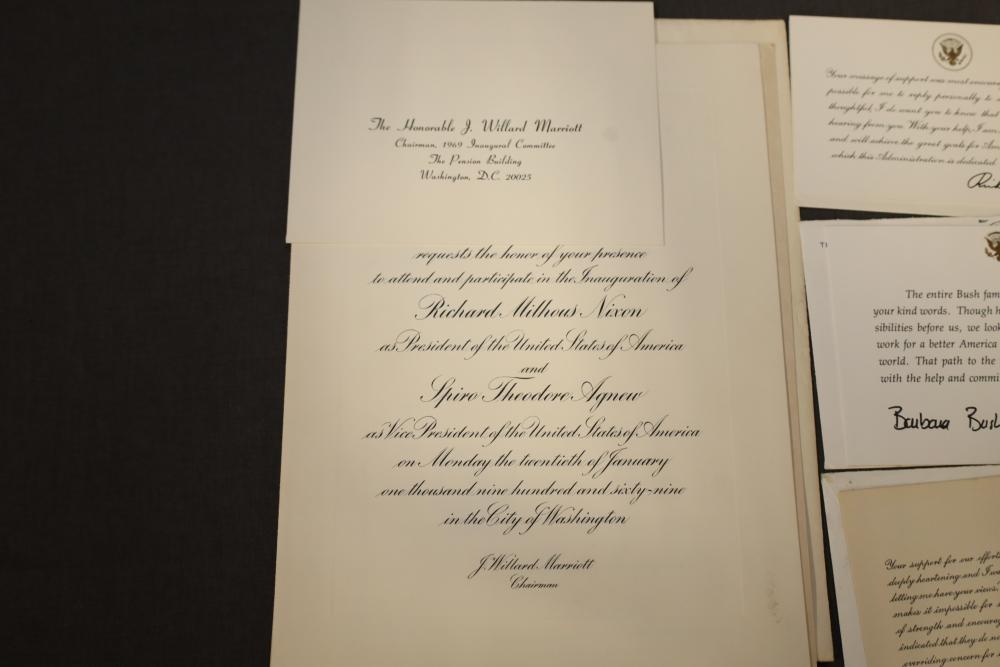 The Honorable J. Willard Marriott
Chairman, 1969 Inaugural Committee
The Pension Building
Washington, D.C. 20025
requests the honor of your presence
to attend and participate in the Inauguration of
Richard Milhous Nixon
as President of the United States of America
and
Spiro Theodore Agnew
as Vice President of the United States of America
on Monday the twentieth of January
one thousand nine hundred and sixty-nine
in the City of Washington
J. Willard Marriott
Chairman
Your message of support was most
possible for me to reply personally to
thoughtful, I do want you to know that
hearing from you. With your help, I am
and will achieve the great goals for
which this Administration is dedicated
T1
The entire Bush fam
your kind words. Though h
sibilities before us, we look
work for a better America
world. That path to the
with the help and commi
Barbara Bush
Your support for our efforts
deeply heartening and I
letting me have your views.
makes it impossible for
of strength and
indicated that they do
overriding concern for